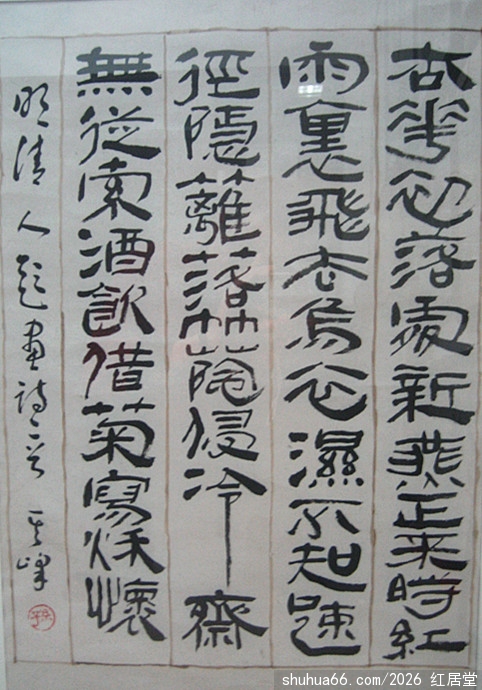 杏花初落處新燕正来時紅
雨裏飛去烏衣濕不知踈
徑隱蘺落竹蔭侵冷齋
無從索酒飲借菊寫秋懷
明清人題畫詩二首 其峰
shuhua66.com/2026 红居堂